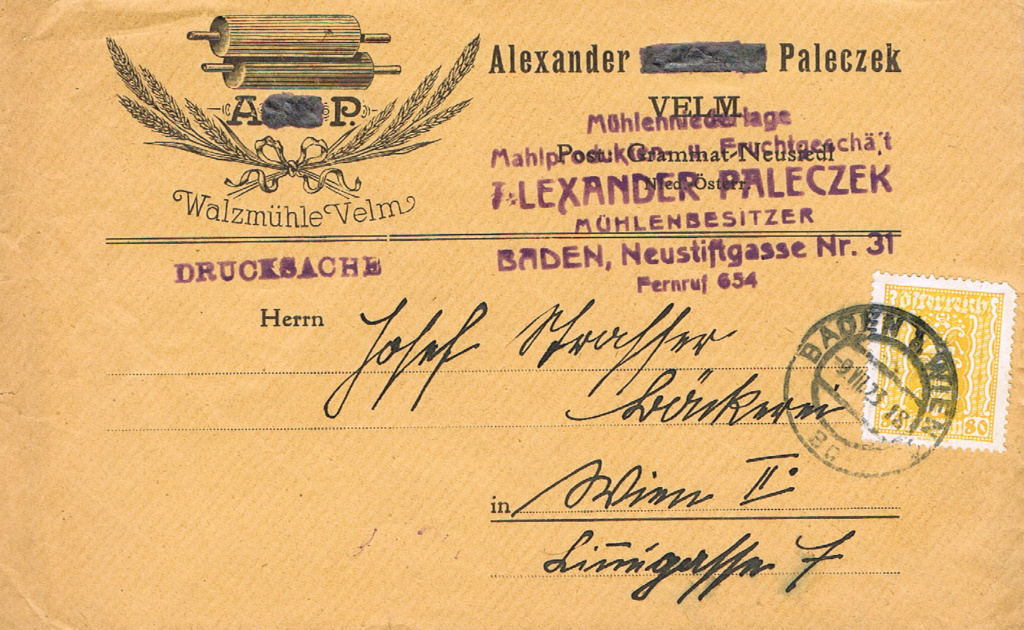 A P.
Walzmühle Velm
Alexander Paleczek
VELM
Post: Grammat-Neusiedl
Nied.-Österr.
Mühlenniederlage
Mahlprodukten u. Fruchtgeschäft
ALEXANDER PALECZEK
MÜHLENBESITZER
BADEN, Neustiftgasse Nr. 31
Fernruf 654
DRUCKSACHE
Österreich
80
BADEN b. WIEN
9.III.23
Herrn Josef Strasser
Bäckerei
in Wien II.
7